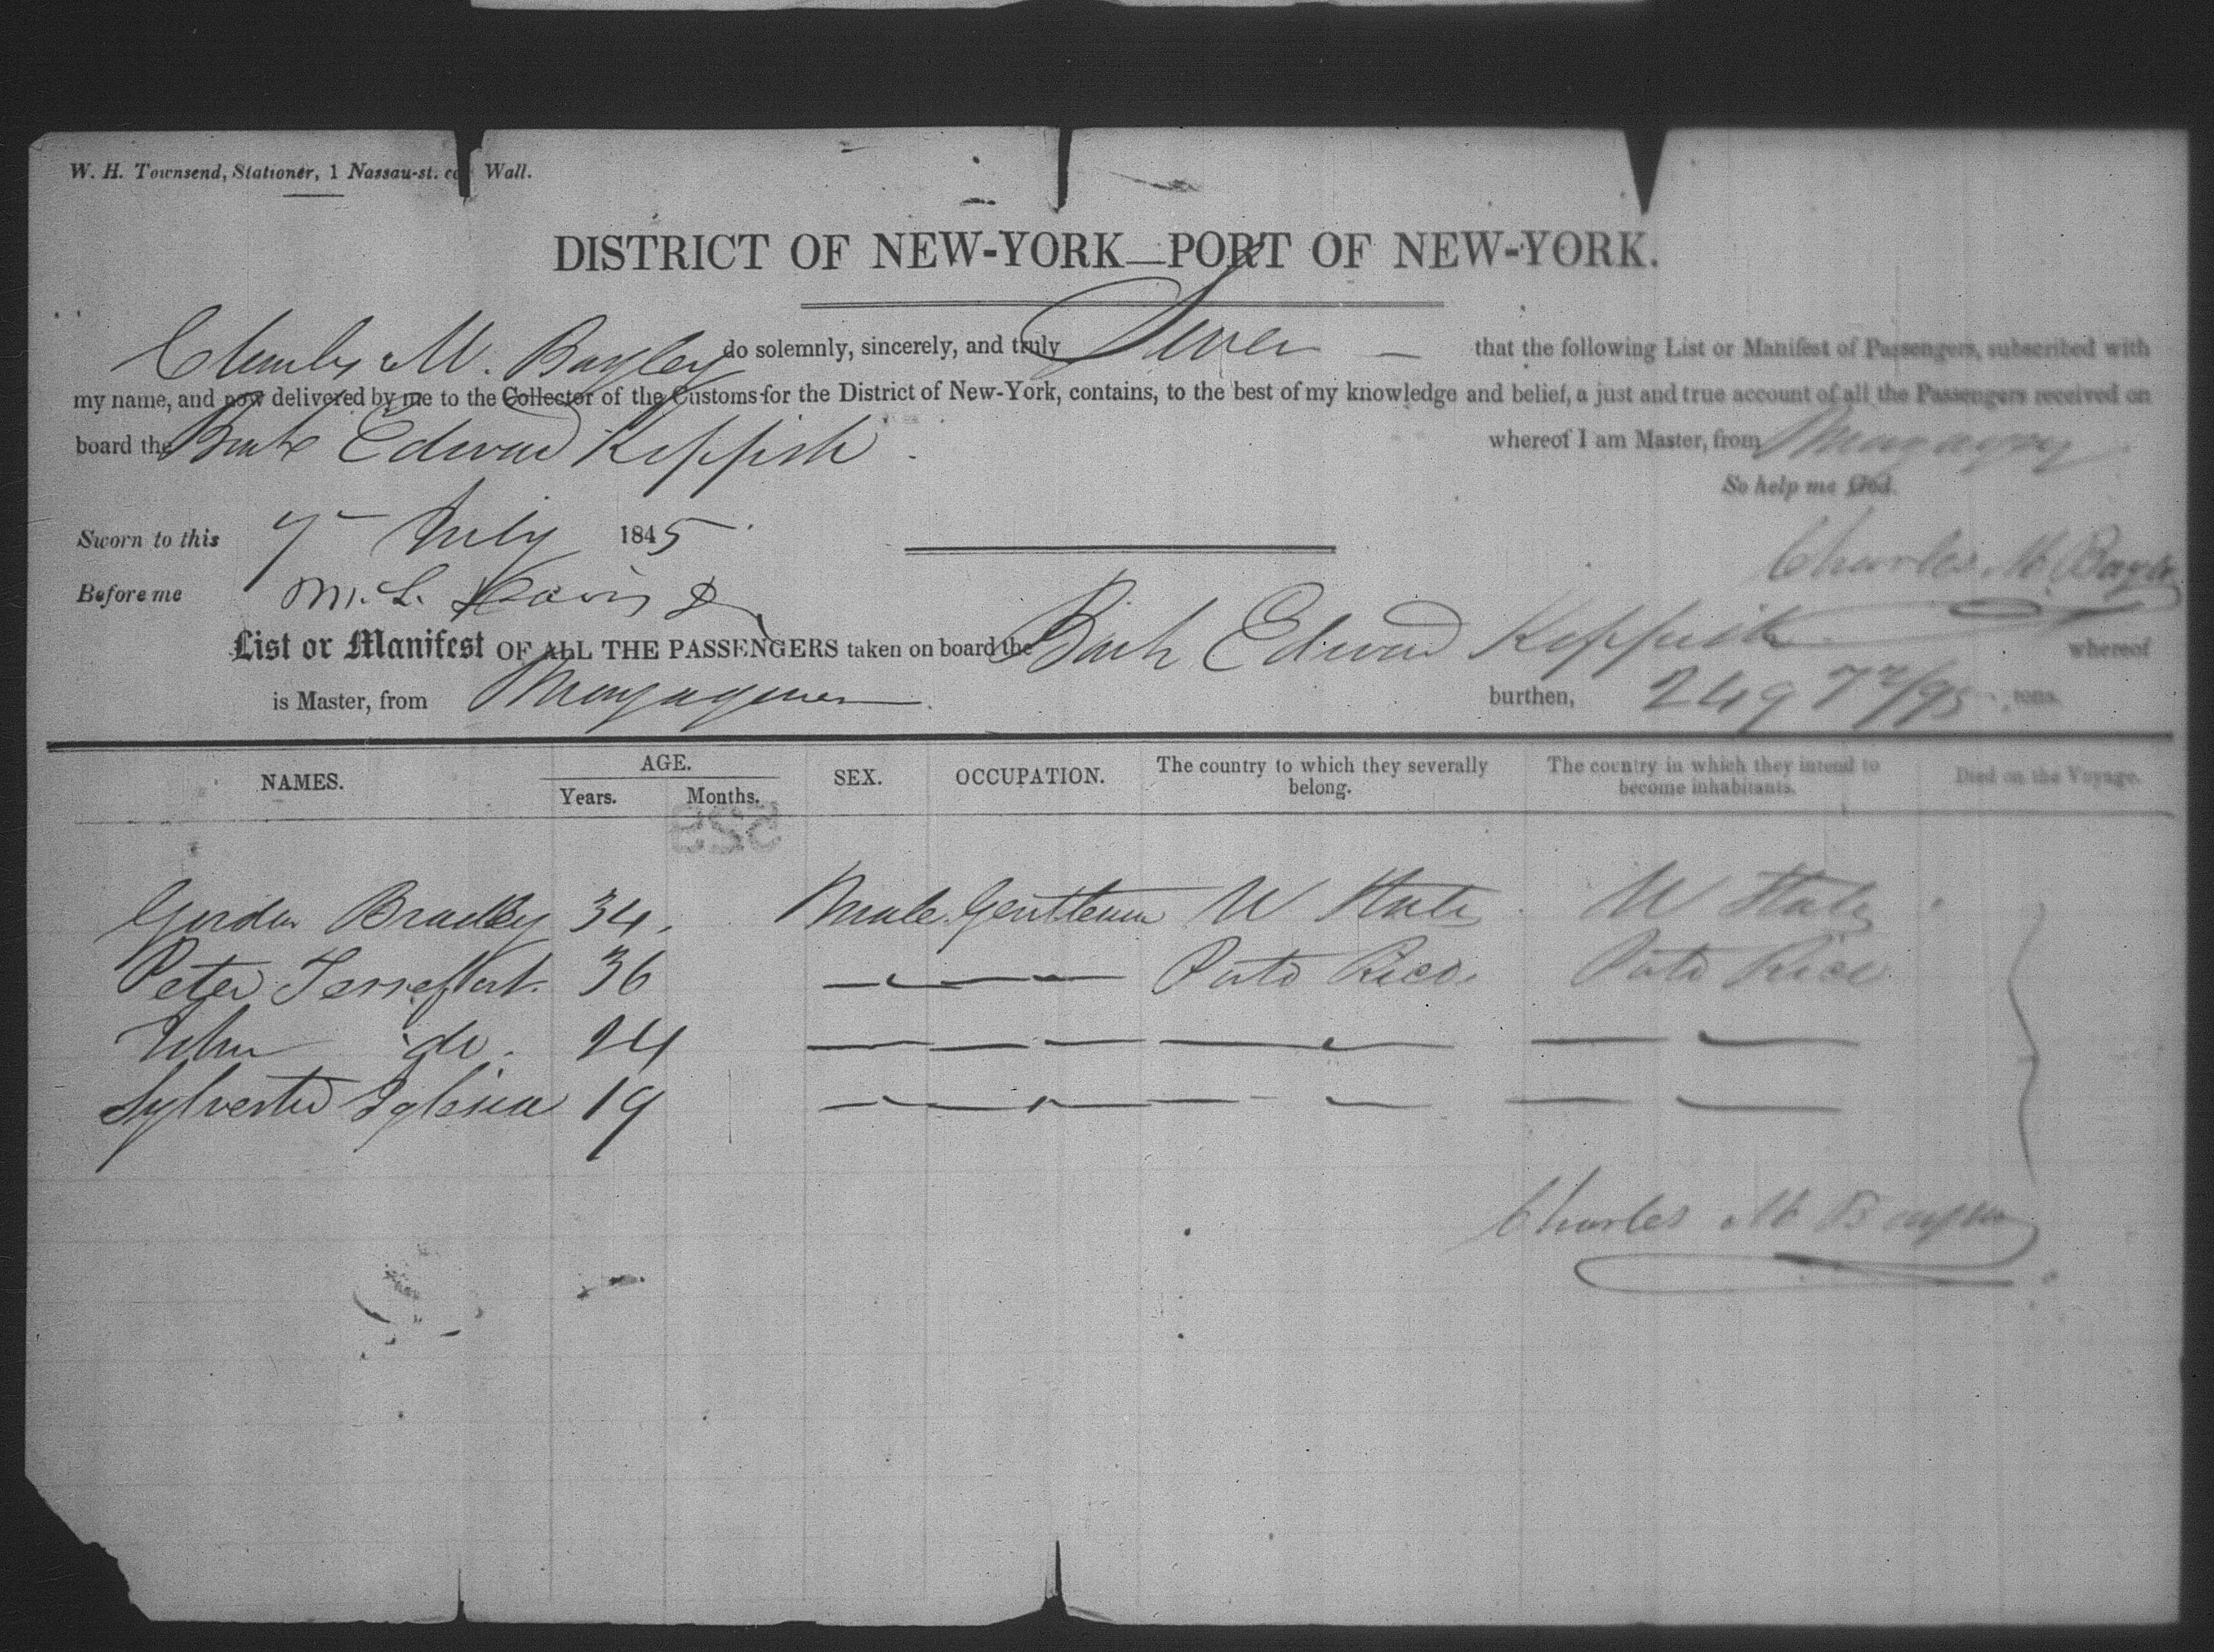 W. H. Townsend, Stationer, 1 Nassau-st. co Wall.
DISTRICT OF NEW-YORK—PORT OF NEW-YORK.
Charles M. Bagley do solemnly, sincerely, and truly Swear — that the following List or Manifest of Passengers, subscribed with
my name, and now delivered by me to the Collector of the Customs for the District of New-York, contains, to the best of my knowledge and belief, a just and true account of all the Passengers received on
board the Bark Edward Koppish whereof I am Master, from Mayaguez
So help me God.
Sworn to this 7 July 1845
Charles M. Bagley
Before me M. L. Davis
List or Manifest OF ALL THE PASSENGERS taken on board the Bark Edward Koppish whereof
is Master, from Mayaguez burthen, 249 72/95 tons.
NAMES. AGE. SEX. OCCUPATION. The country to which they severally belong. The country in which they intend to become inhabitants. Died on the Voyage.
Years. Months.
525
Gordon Bradley 34 Male Gentleman U States U States
Peter 36 — — Porto Rico Porto Rico
John do. 24 — — — —
Sylvester Iglesia 19 — — — —
Charles M Bagley